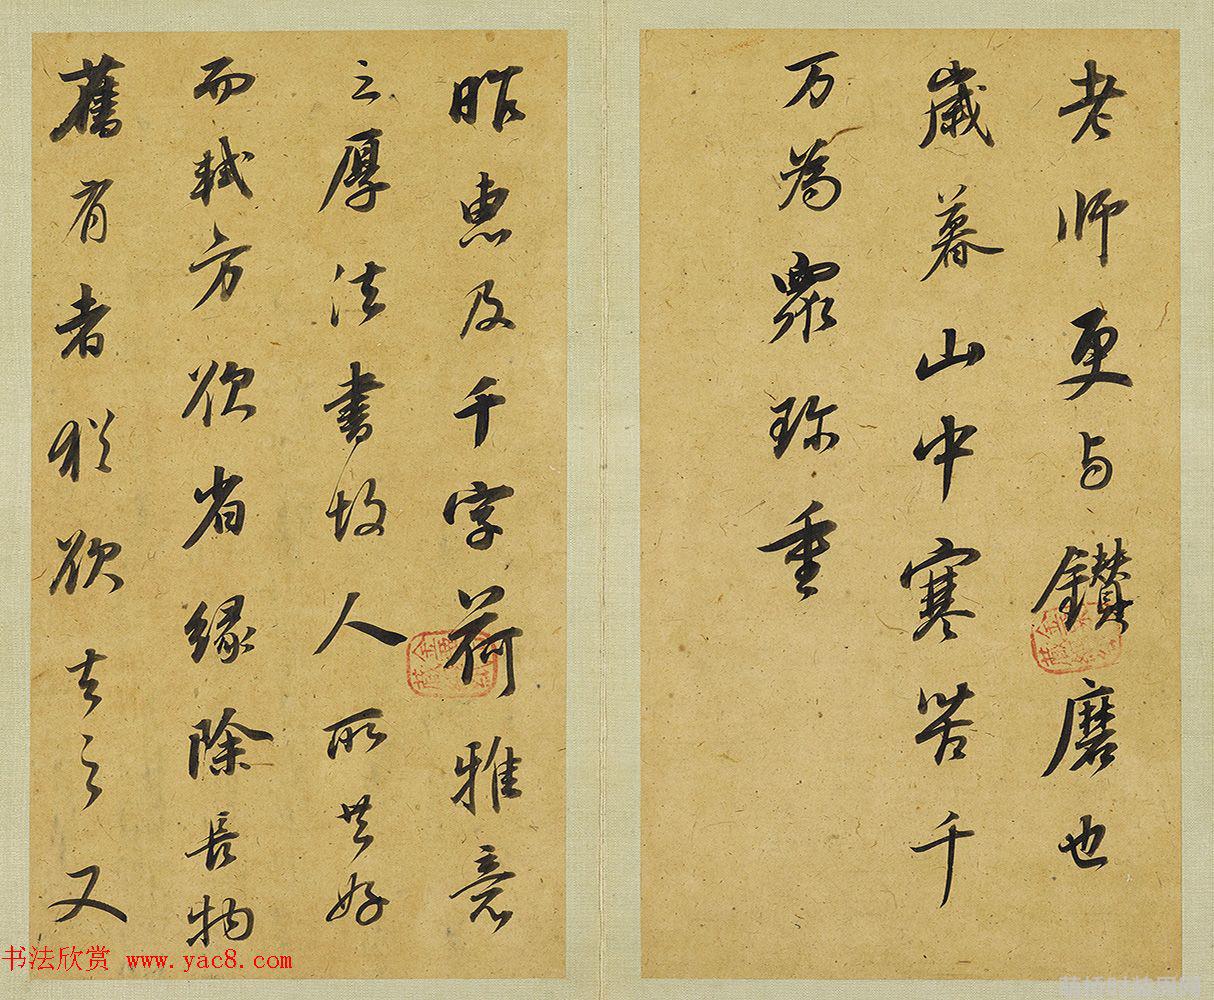 老师更与鑚磨也
歲暮山中寒苦千
万為衆珎重
昨惠及千字荷雅意
之厚法書故人所共好
而軾方欲省緣除長物
舊有者猶欲去之又
书法欣赏 www.yac8.com